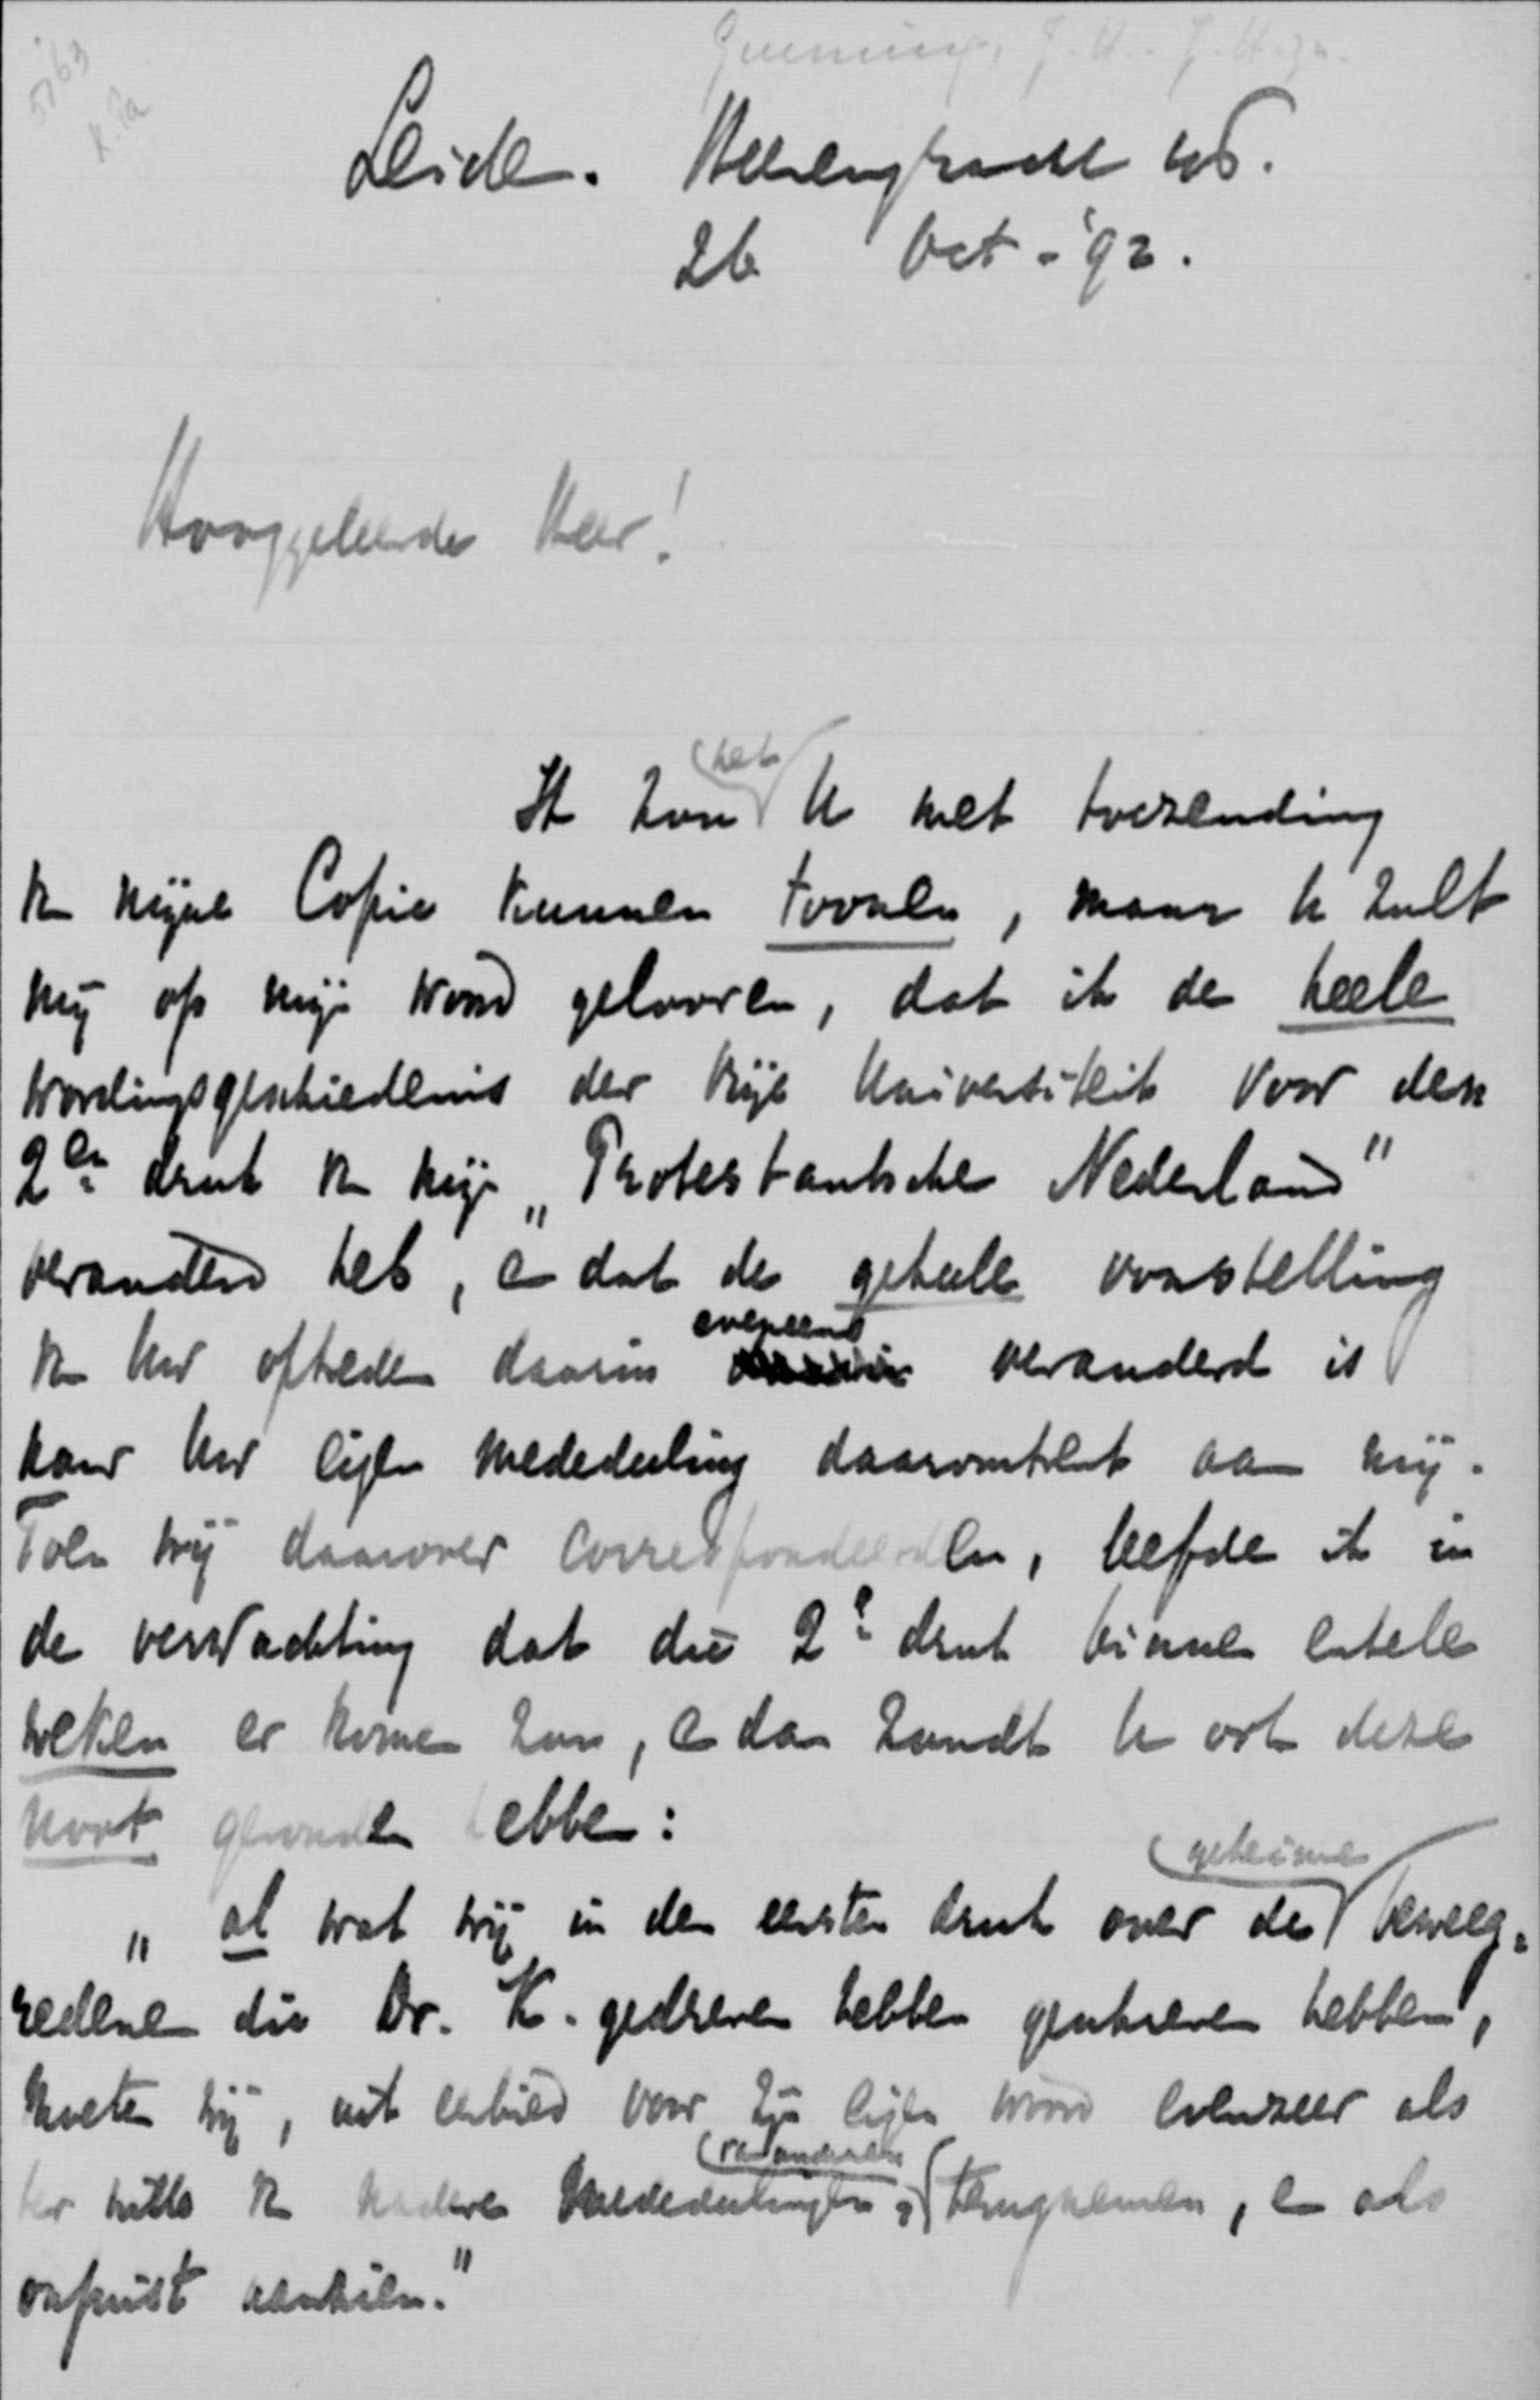 Gunning, J.H. J.H.zn.
5163
Leiden. Heerengracht
26 Oct - '92.
Hooggeleerde Heer!
het
Ik zou U met toezending
v mijne Copie kunnen toonen, maar U zult
mij op mijn woord gelooven, dat ik de heele
wordingsgeschiedenis der Vrije Universiteit voor den
2en druk v mijn „Protestantsche Nederland"
veranderd heb, en dat de geheele voorstelling
eveneens
v Uw optreden daarin veranderd is
naar Uw eigen mededeeling daaromtrent aan mij.
Toen wij daarover correspondeerden, leefde ik in
de verwachting dat die 2e druk binnen enkele
weken er komen zou, en dan zoudt U ook deze
noot gevonden hebben:
geheime
„al wat wij in den eersten druk over de beweeg=
redenen die Dr. K. gedreven hebben geschreven hebben,
moeten wij, uit eerbied voor zijn eigen woord evenzeer als
van anderen
ter wille v nadere mededeelingen, terugnemen, en als
onjuist erkennen."